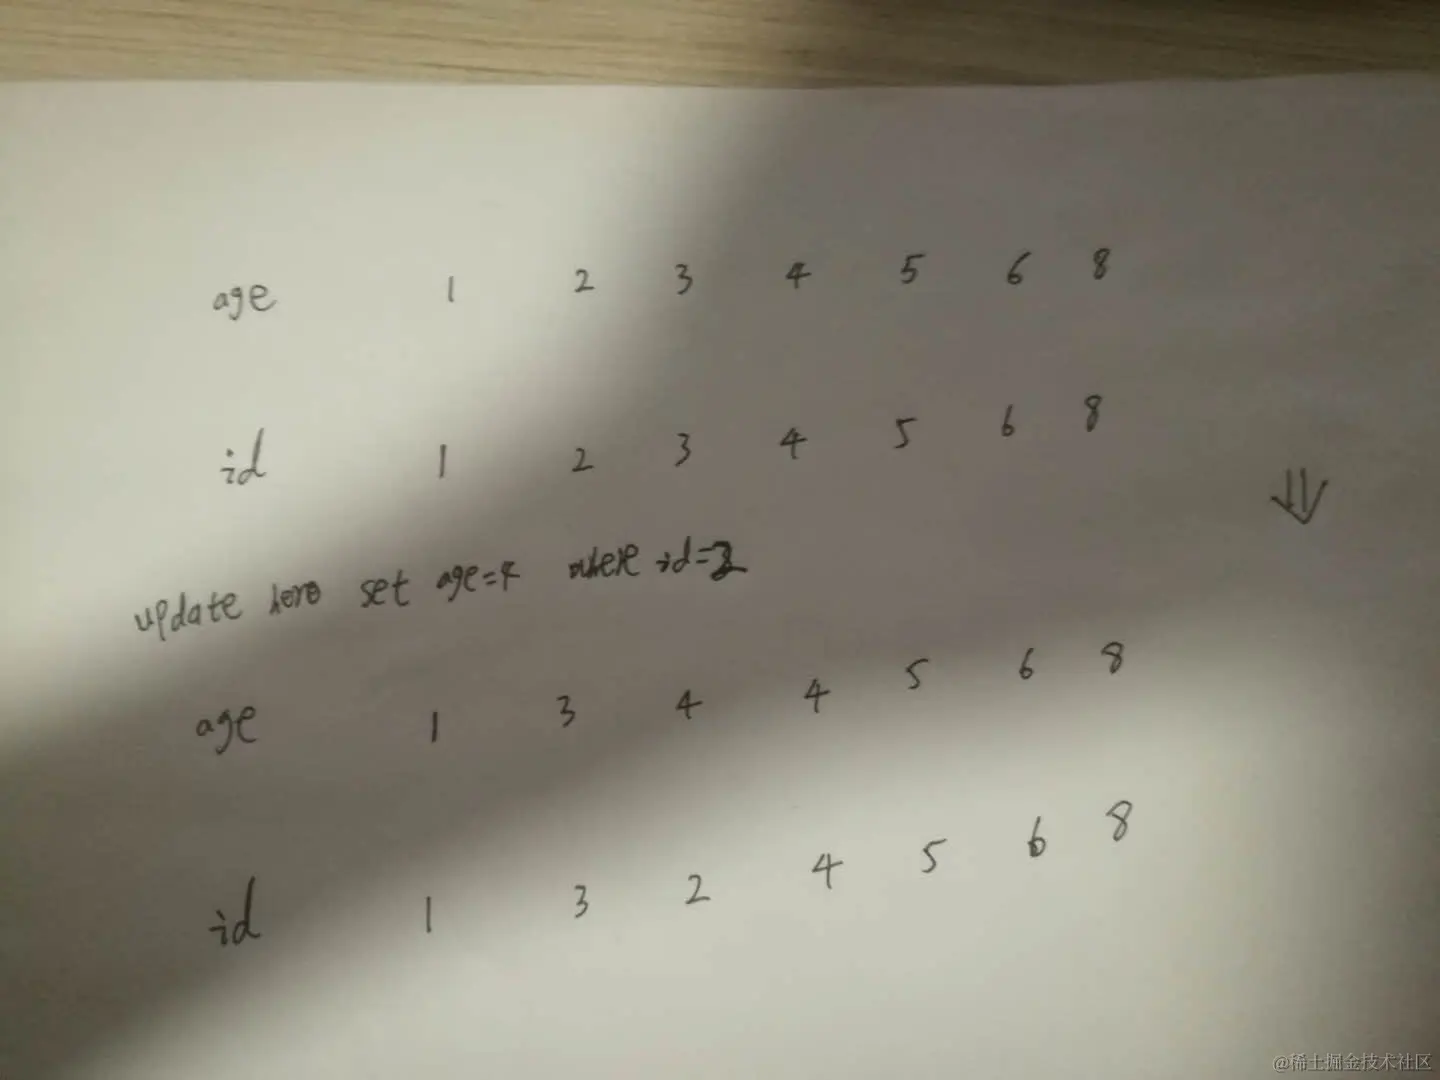 age 1 2 3 4 5 6 8
id 1 2 3 4 5 6 8
⇓
update hero set age=4 where id=2
age 1 3 4 4 5 6 8
id 1 3 2 4 5 6 8
@稀土掘金技术社区